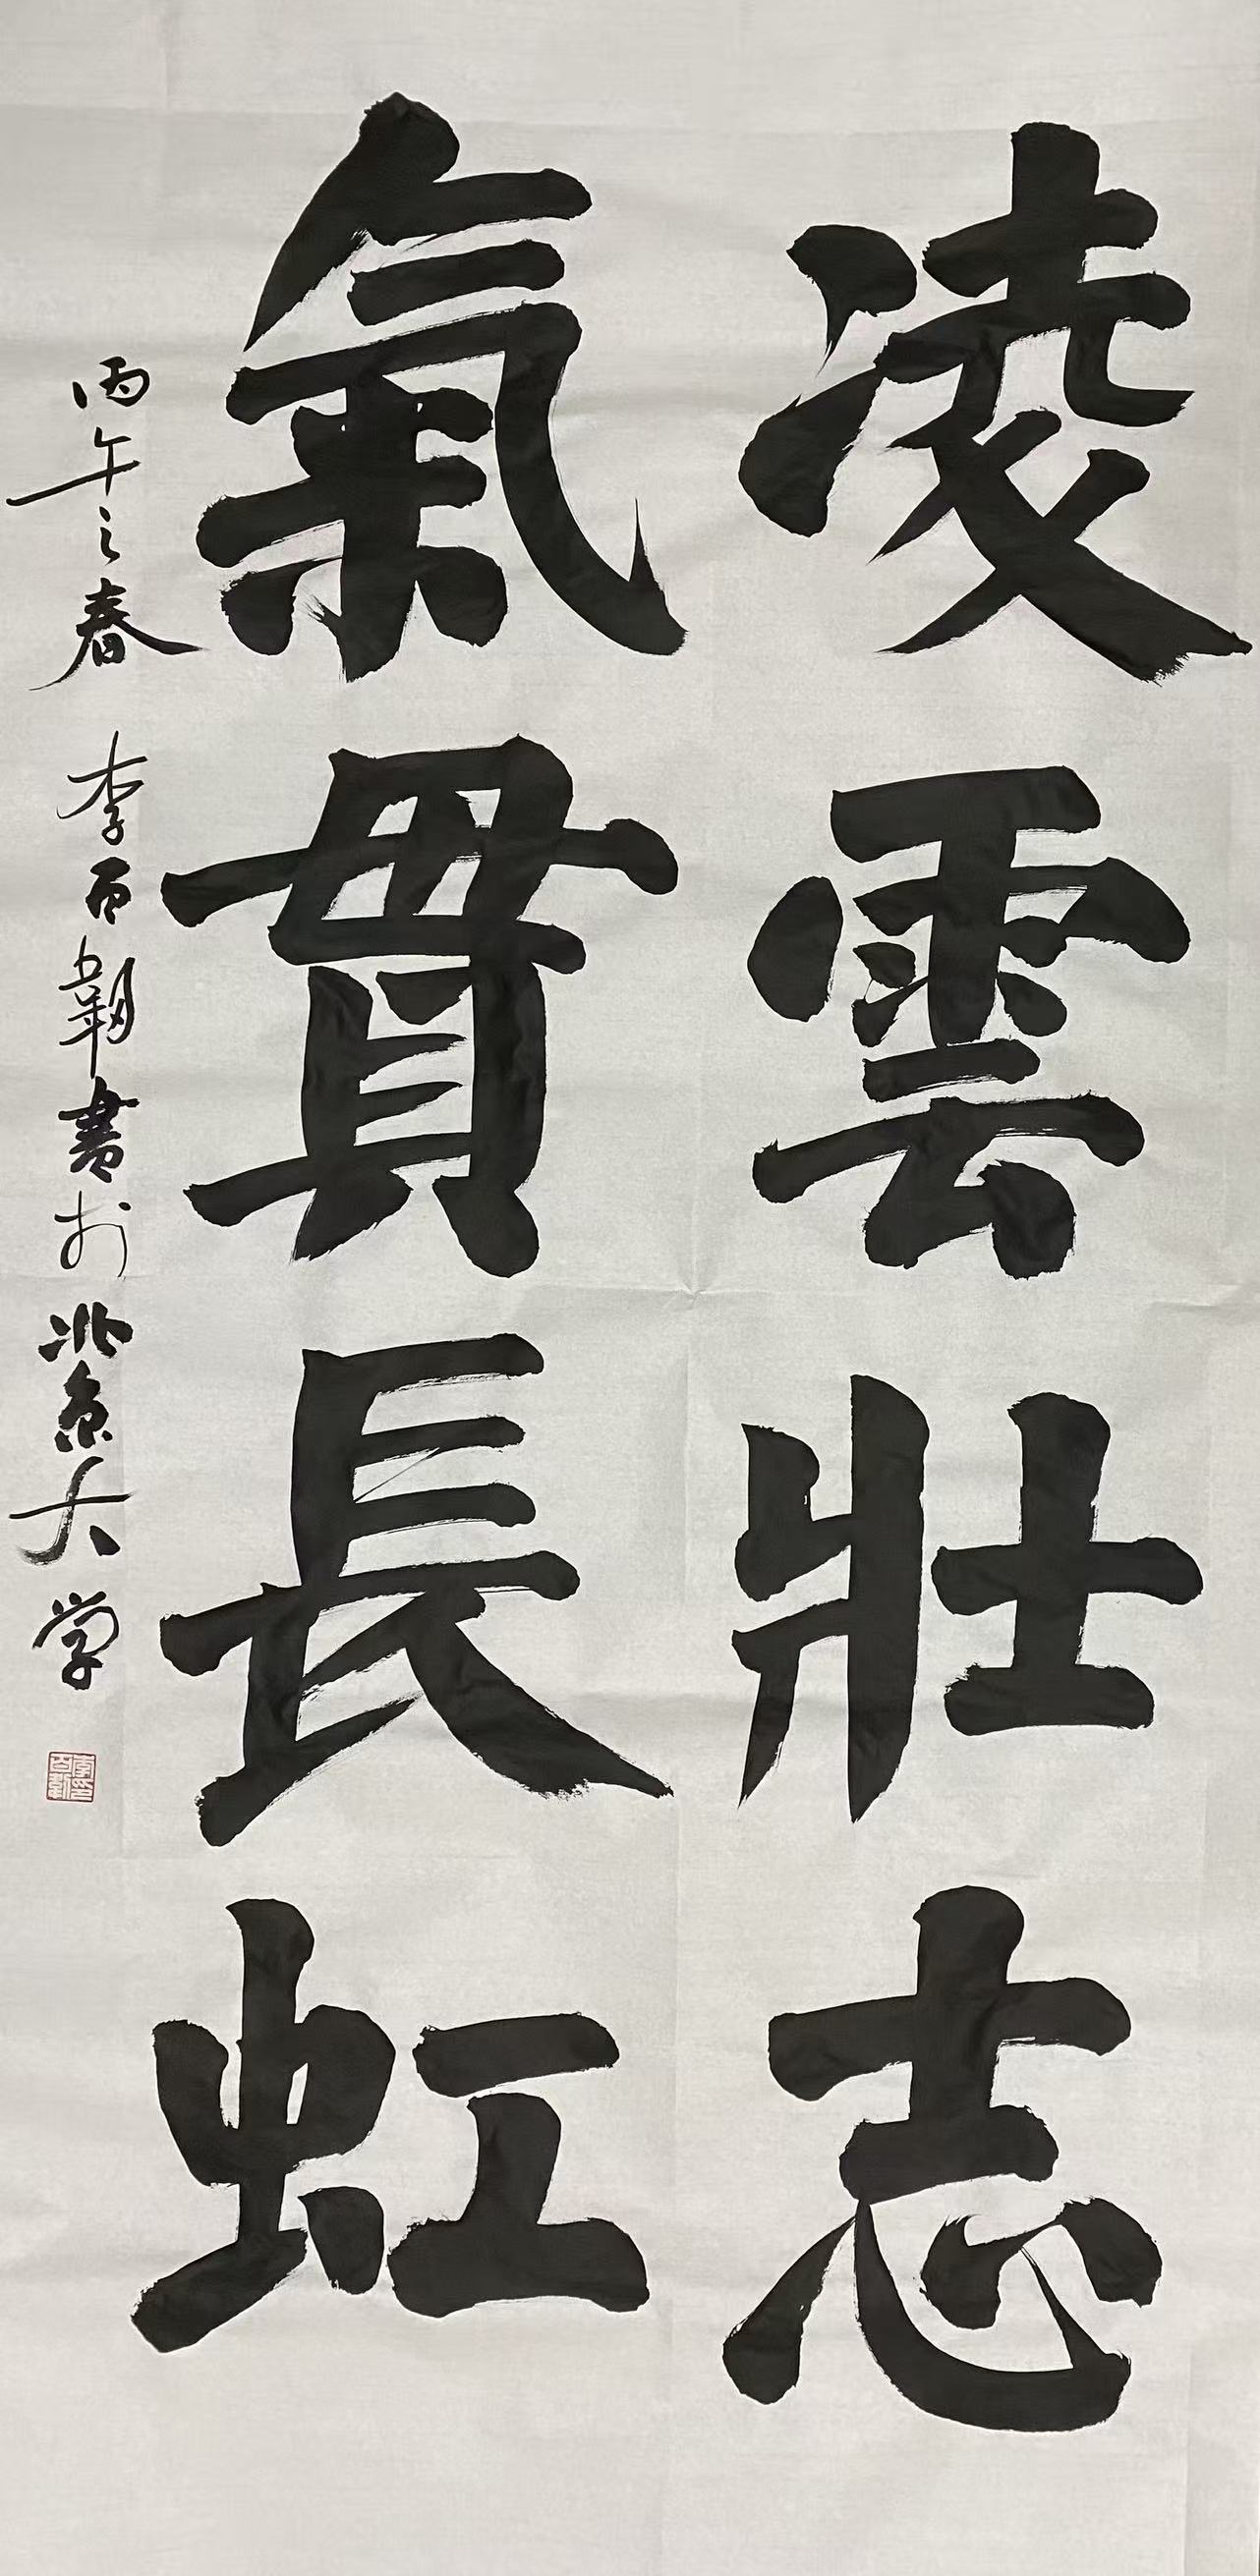 凌雲壯志
氣貫長虹
丙午之春 李百韌書於北京大学
李百韌印